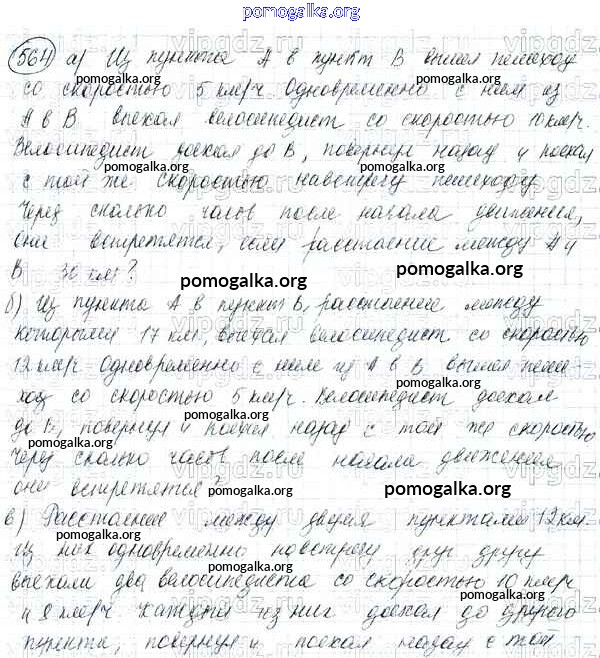 pomogalka.org
564 а) Из пункта А в пункт В вышел пешеход
со скоростью 5 км/ч. Одновременно с ним из
А в В выехал велосипедист со скоростью 10 км/ч.
Велосипедист доехал до В, повернул назад и поехал
с той же скоростью навстречу пешеходу.
Через сколько часов после начала движения,
они встретятся, если расстояние между А и
В 30 км?
б) Из пункта А в пункт В, расстояние между
которыми 17 км, выехал велосипедист со скоростью
12 км/ч. Одновременно с ним из А в В вышел пеше-
ход со скоростью 5 км/ч. Велосипедист доехал
до В, повернул и поехал назад с той же скоростью
Через сколько часов после начала движения
они встретятся?
в) Расстояние между двумя пунктами 12 км.
Из них одновременно навстречу друг другу
выехали два велосипедиста со скоростью 10 км/ч
и 8 км/ч. Каждый из них доехал до другого
пункта, повернул и поехал назад с той